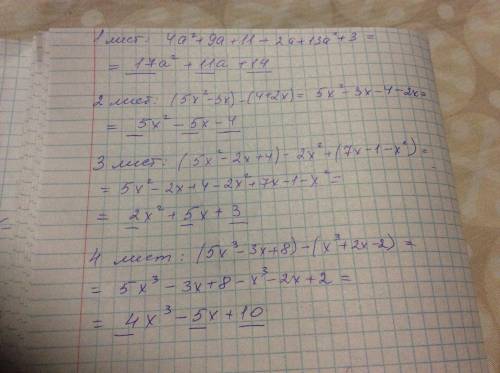 1 лист: 4a²+9a+11+2a+13a²+3=
= 17a²+11a+14
2 лист: (5x²-3x)-(4+2x)= 5x²-3x-4-2x=
= 5x²-5x-4
3 лист: (5x²-2x+4)-2x²+(7x-1-x²)=
= 5x²-2x+4-2x²+7x-1-x²=
= 2x²+5x+3
4 лист: (5x³-3x+8)-(x³+2x-2)=
= 5x³-3x+8-x³-2x+2=
= 4x³-5x+10